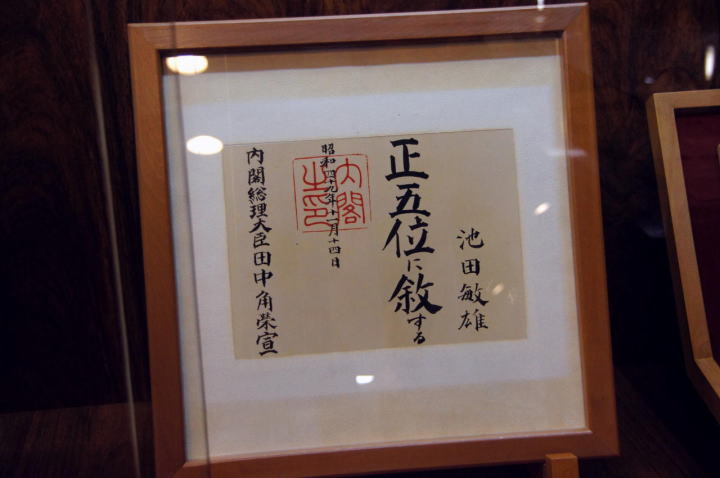 池田敏雄
正五位に敘する
昭和四十九年十一月十四日
内閣之印
内閣総理大臣田中角榮宣